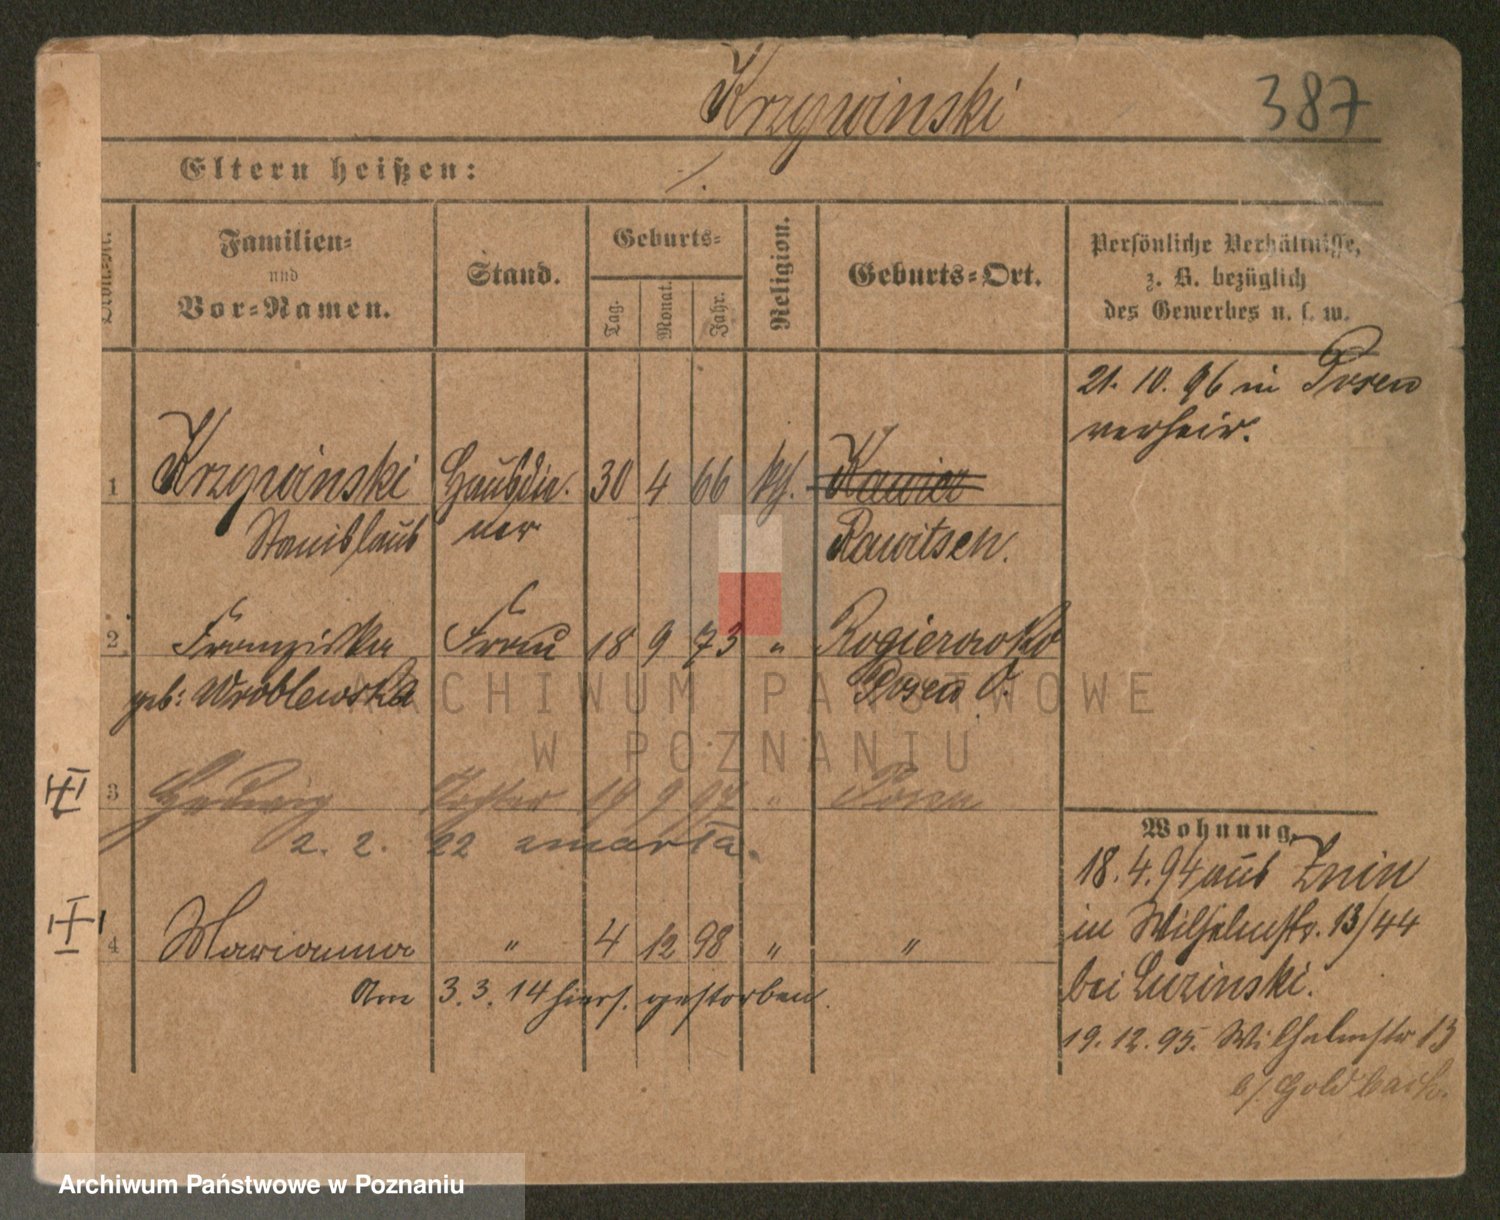 Krzywinski
387
Eltern heißen:
Familien- und Vor-Namen.
Stand.
Geburts-
Tag. Monat. Jahr.
Religion.
Geburts-Ort.
Persönliche Verhältnisse,
z. B. bezüglich
des Gewerbes u. s. w.
21. 10. 96 in Posen
verheir.
1 Krzywinski Hausdie- 30 4 66 kth. Rawicz
Stanislaus ner Rawitsch.
2. Franziska Frau 18 9 73 " Rogierowko
geb: Wroblewska Posen O.
3 Hedwig Tochter 19 9 97 " Posen
2. 2. 22 zmarła.
4 Marianna " 4 12 98 " "
Am 3. 3. 14 hiers. gestorben.
Wohnung.
18. 4. 94 aus Znin
in Wilhelmstr. 13/44
bei Luzinski.
19. 12. 95. Wilhelmstr 13
b/. Goldbach.
ARCHIWUM PAŃSTWOWE
W POZNANIU
Archiwum Państwowe w Poznaniu